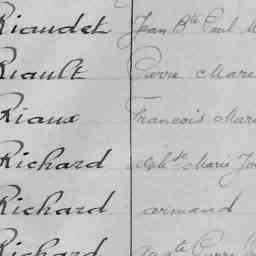 Riaudet Jean Bte Paul
Riault Pierre Marie
Riaux Francois Marie
Richard Marie
Richard armand
Richard Augte Pierre